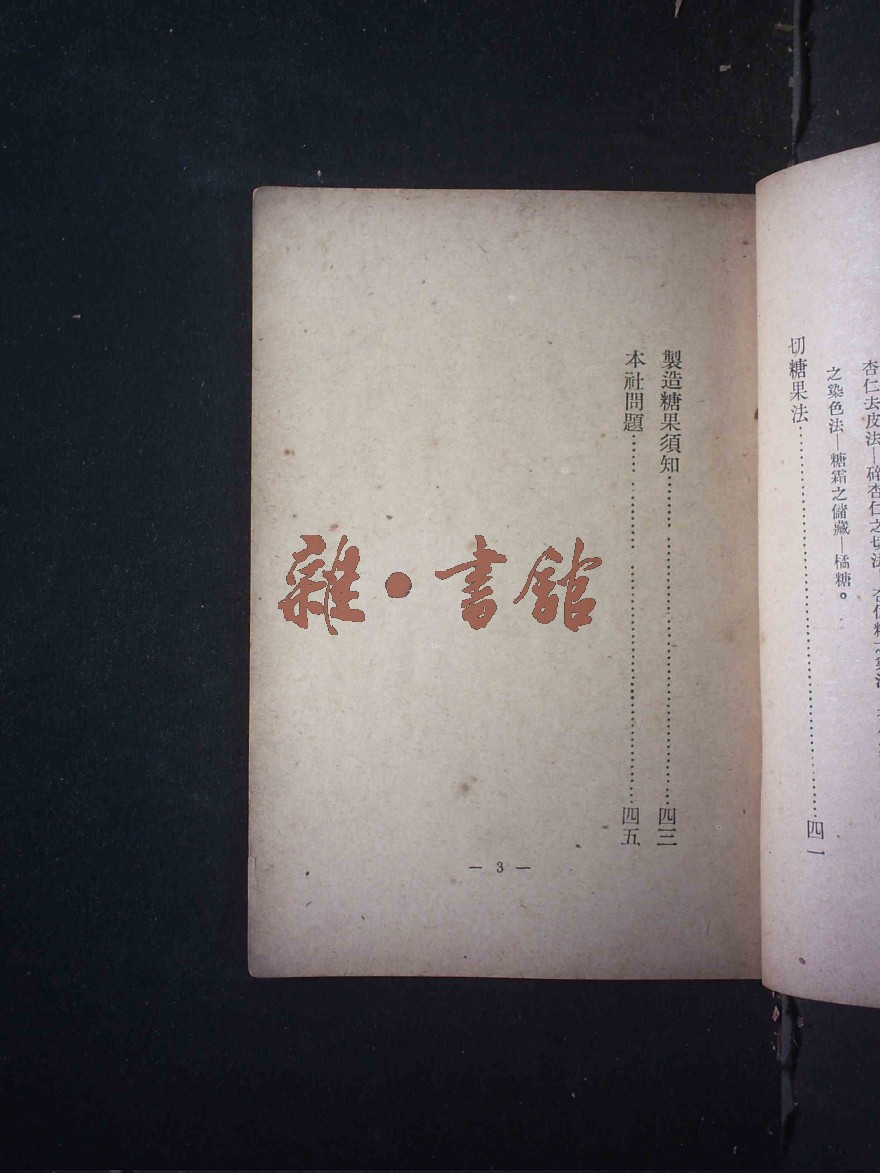 杏仁去皮法—碎杏仁之切法
之染色法—糖霜之儲藏—橘糖。
切糖果法……四一
製造糖果須知……四三
本社問題……四五
— 3 —
雜·書館